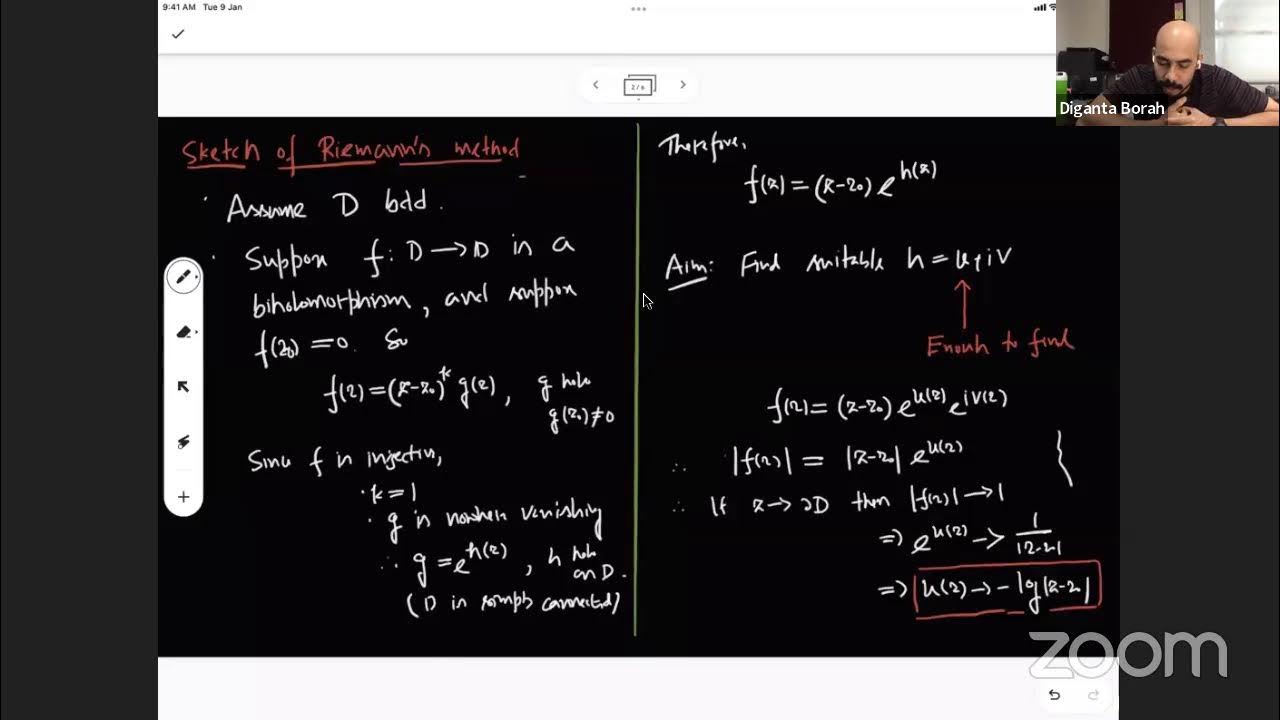 9:41 AM Tue 9 Jan
2/6
Diganta Borah
Sketch of Riemann's method
· Assume D bdd.
· Suppose f: D → D is a
biholomorphism, and suppose
f(z₀) = 0. So
f(z) = (z-z₀)ᵏ g(z), g holo
g(z₀) ≠ 0
Since f is injective,
· k = 1
· g is nowhere vanishing
∴ g = e^{h(z)}, h holo
on D.
(D is simply connected)
Therefore,
f(z) = (z-z₀) e^{h(z)}
Aim: Find suitable h = u+iv
Enough to find
f(z) = (z-z₀) e^{u(z)} e^{iv(z)}
∴ |f(z)| = |z-z₀| e^{u(z)}
∴ If z → ∂D then |f(z)| → 1
⇒ e^{u(z)} → 1/|z-z₀|
⇒ u(z) → - log|z-z₀|
zoom